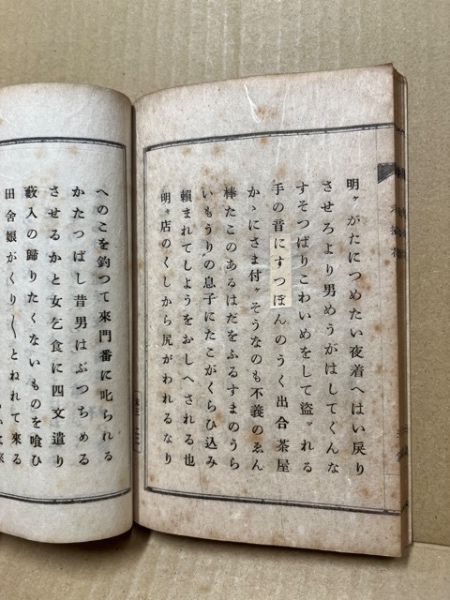 明ヶがたにつめたい夜着へはい戻り
させろより男めうがはしてくんな
すそつぱりこわいめをして盜まれる
手の音にすつぽんのうく出合茶屋
かゝにさま付ヶそうなのも不義のゑん
棒たこのあるはだをふるすまのうら
いもうりの息子にたこがくらひ込み
賴まれてしようをおしへされる也
明ヶ店のくしから尻がわれるなり
へのこを釣つて來門番に叱られる
かたつぱし昔男はぶつちめる
させるかと女乞食に四文遣り
藪入の歸りたくないものを喰ひ
田舍娘がくり〳〵とねれて來る